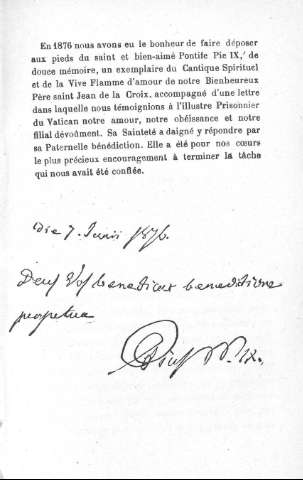 En 1876 nous avons eu le bonheur de faire déposer
aux pieds du saint et bien-aimé Pontife Pie IX, de
douce mémoire, un exemplaire du Cantique Spirituel
et de la Vive Flamme d'amour de notre Bienheureux
Père saint Jean de la Croix, accompagné d'une lettre
dans laquelle nous témoignions à l'illustre Prisonnier
du Vatican notre amour, notre obéissance et notre
filial dévoûment. Sa Sainteté a daigné y répondre par
sa Paternelle bénédiction. Elle a été pour nos cœurs
le plus précieux encouragement à terminer la tâche
qui nous avait été confiée.
Die 7. Junii 1876.
Deus Vos benedicat benedictione
perpetua
Pius PP. IX.